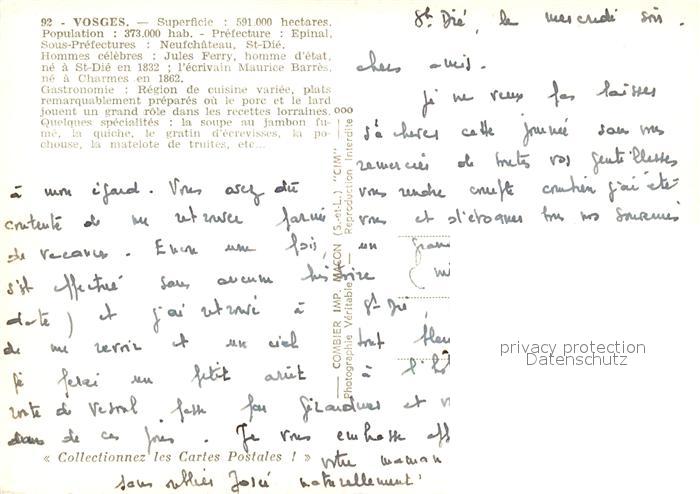 92 - VOSGES. — Superficie : 591.000 hectares.
Population : 373.000 hab. - Préfecture : Epinal,
Sous-Préfectures : Neufchâteau, St-Dié.
Hommes célèbres : Jules Ferry, homme d'état,
né à St-Dié en 1832 ; l'écrivain Maurice Barrès,
né à Charmes en 1862.
Gastronomie : Région de cuisine variée, plats
remarquablement préparés où le porc et le lard
jouent un grand rôle dans les recettes lorraines.
Quelques spécialités : la soupe au jambon fu-
mé, la quiche, le gratin d'écrevisses, la po-
chouse, la matelote de truites, etc...
St Dié, le mercredi soir.
chers amis.
Je ne veux pas laisser
s'achever cette journée sans vous
remercier de toutes vos gentillesses
à mon égard. Vous avez dû
vous rendre compte combien j'ai été
contente de me retrouver parmi
vous et d'évoquer tous nos souvenirs
de vacances. Encore une fois, un
s'est effectué sans aucun histoire
date) et j'ai retrouvé à St Dié,
de me revoir et un ciel tout bleu
Je ferai un petit arrêt à
route de Vesoul par Gérardmer et
dans de ces jours. Je vous embrasse
votre maman
sans oublier José naturellement!
« Collectionnez les Cartes Postales ! »
— COMBIER IMP. MACON (S.-et-L.) "CIM" —
Photographie Véritable - Reproduction Interdite
privacy protection
Datenschutz